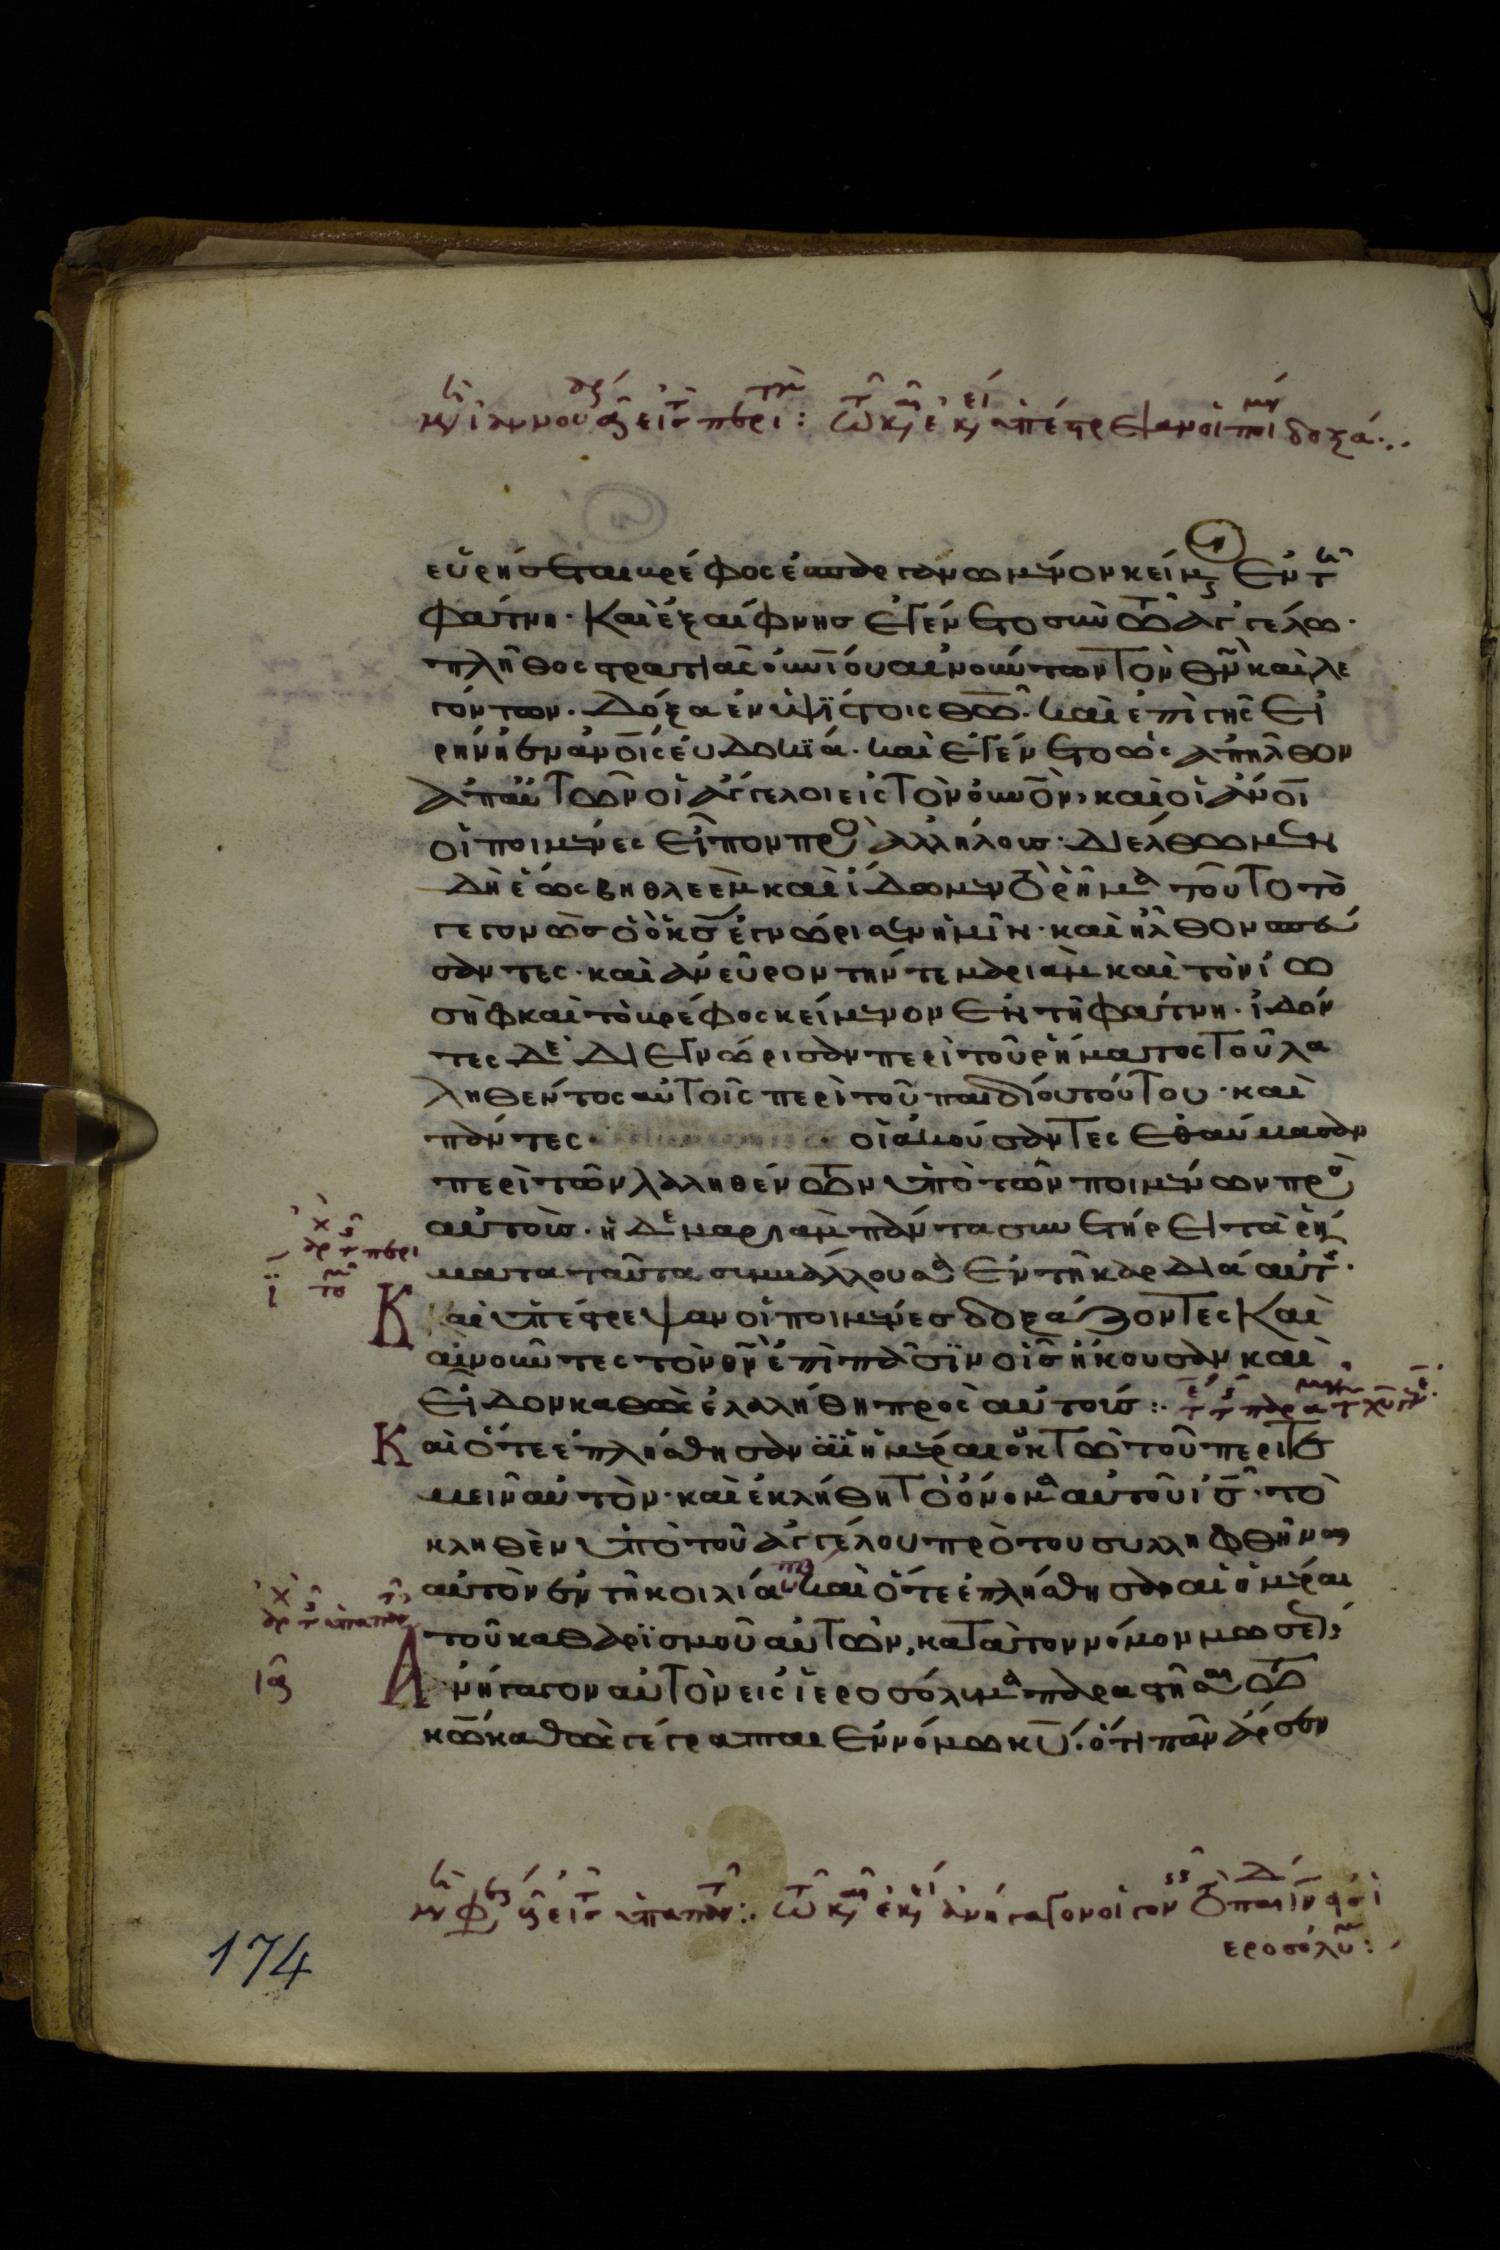 εὑρήσεται βρέφος ἐσπαργανωμένον κείμ ἐν τ
φάτνη· Καὶ ἐξαίφνης ἐγένετο σὺν τῶ ἀγγέλω·
πλῆθος στρατιᾶς οὐνίου αἰνούντων τὸν θν καὶ λε
γόντων· Δόξα ἐν ὑψίστοις θω· καὶ ἐπὶ γῆς εἰ
ρήνη ἐν ἀνοις εὐδοκϊά· καὶ ἐγένετο ὡς ἀπῆλθον
ἀπ αὐτῶν οἱ ἄγγελοι εἰς τὸν οὐνον, καὶ οἱ ἄνοι
οἱ ποιμένες εἶπον πρὸ ἀλλήλους· Διέλθωμεν
δὴ ἕως βηθλεὲμ καὶ ἴδωμεν τὸ ῥῆμα τοῦτο τὸ
γεγονὼς ὃ ὁ κς ἐγνώρισεν ἡμῖν· καὶ ἦλθον σπεύ
σαντες· καὶ ἀνεῦρον τήν τε μαριὰμ καὶ τὸν ἰω
σὴφ καὶ τὸ βρέφος κείμενον ἐν τῆ φάτνη· ἰδόν
τες δὲ διεγνώρισαν περὶ τοῦ ῥήματος τοῦ λα
ληθέντος αὐτοῖς περὶ τοῦ παιδίου τούτου· καὶ
πάντες οἱ ἀκούσαντες ἐθαύμασαν
περὶ τῶν λαληθέντων ὑπὸ τῶν ποιμένων πρὸ
αὐτούς· ἡ δὲ μαριὰμ πάντα συνετήρει τὰ ῥή
ματα ταῦτα συμβάλλουσα ἐν τῆ καρδιά αὐτ·
Καὶ ὑπέστρεψαν οἱ ποιμένες δοξάζοντες καὶ
αἰνοῦντες τὸν θν ἐπὶ πᾶσϊν οἷς ἤκουσαν καὶ
εἶδον καθὼς ἐλαλήθη πρὸς αὐτούς:
Καὶ ὅτε ἐπλήσθησαν αἱ ἡμέραι ὀκτὼ τοῦ περιτε
μεῖν αὐτὸν· καὶ ἐκλήθη τὸ ὄνομα αὐτοῦ ις· τὸ
κληθὲν ὑπὸ τοῦ ἀγγέλου πρὸ του συλληφθῆναι
αὐτὸν ἐν τῆ κοιλία καὶ ὅτε ἐπλήσθησαν αἱ ἡμέραι
τοῦ καθαρϊσμοῦ αὐτῶν, κατὰ τον νόμον μωσέ
Ἀνήγαγον αὐτὸν εἰς ἱεροσόλυμα παραστῆσαι τῶ
κω καθὼς γέγραπται ἐν νόμω κυ· ὅτι πᾶν ἄρσεν
ἱεροσόλυ:
174